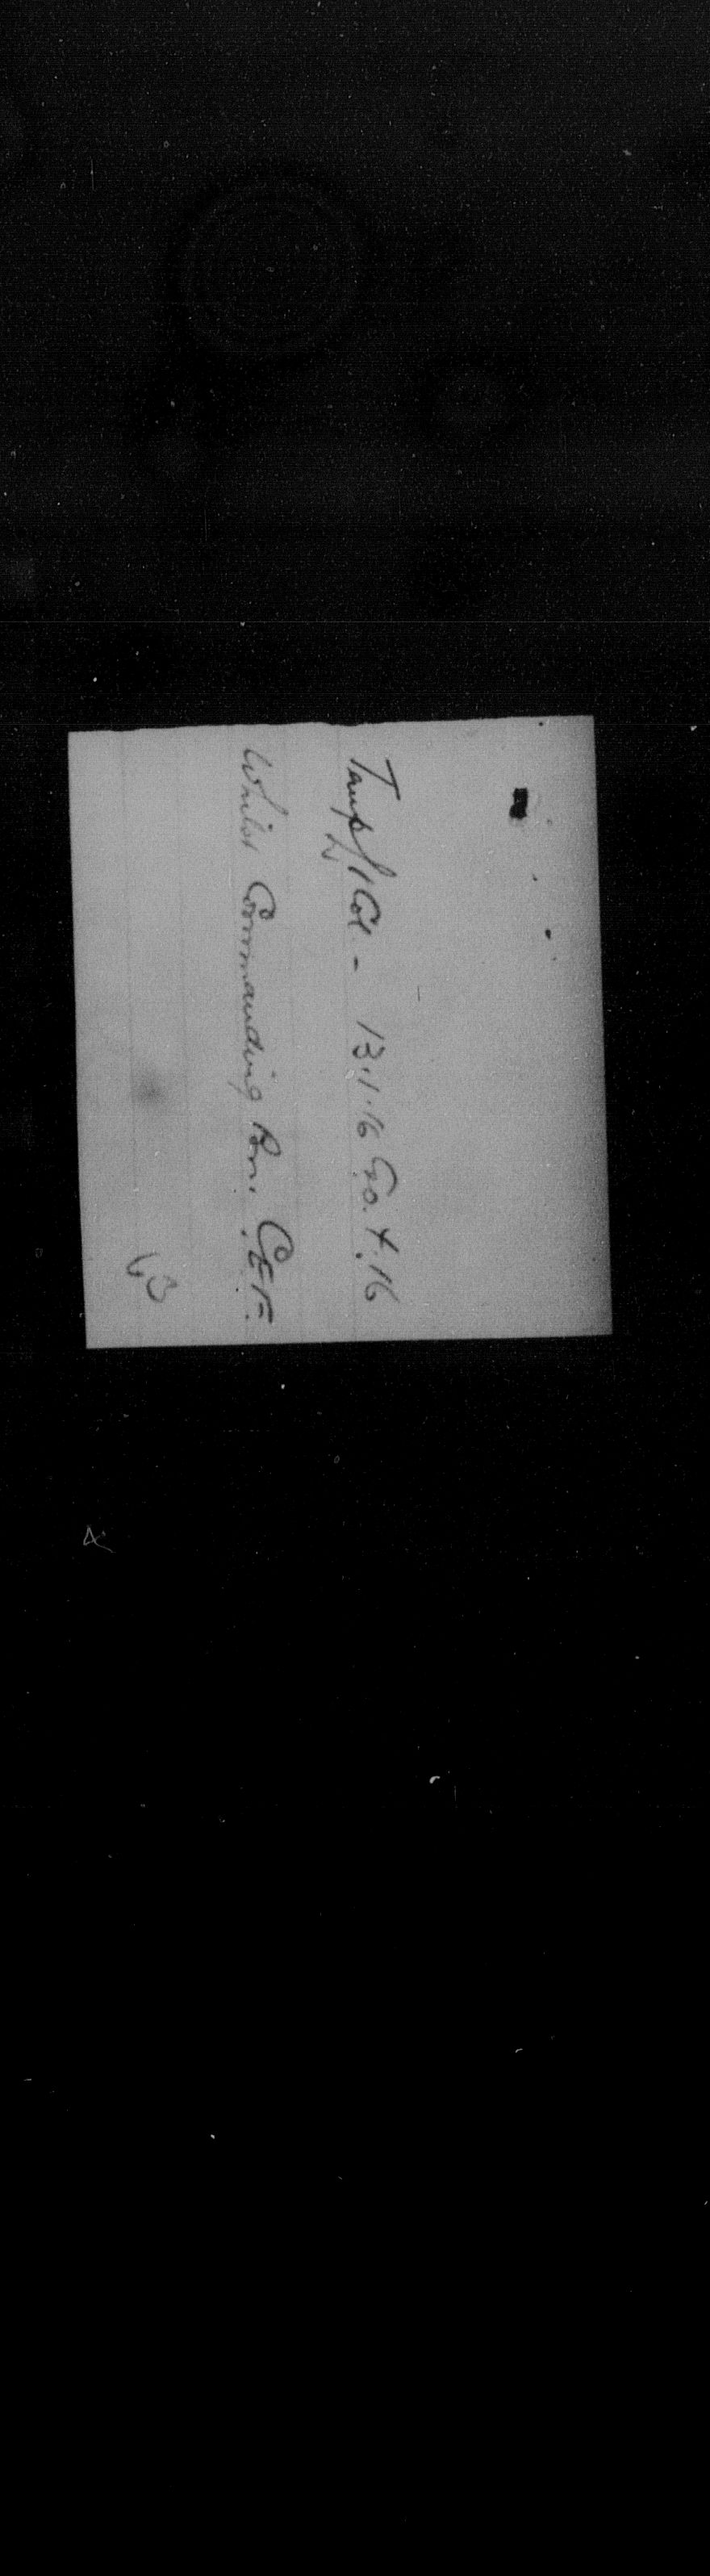 Temp/Lt Col - 13.1.16 G.O. 4.16
Whilst Commanding Bn. C.E.F.
63